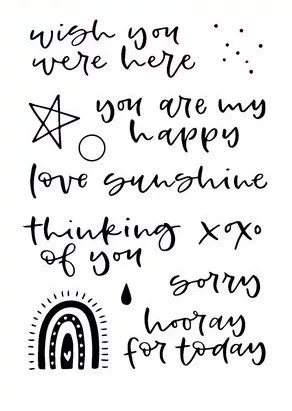 wish you
were here
you are my
happy
love sunshine
thinking
of you
xoxo
sorry
hooray
for today